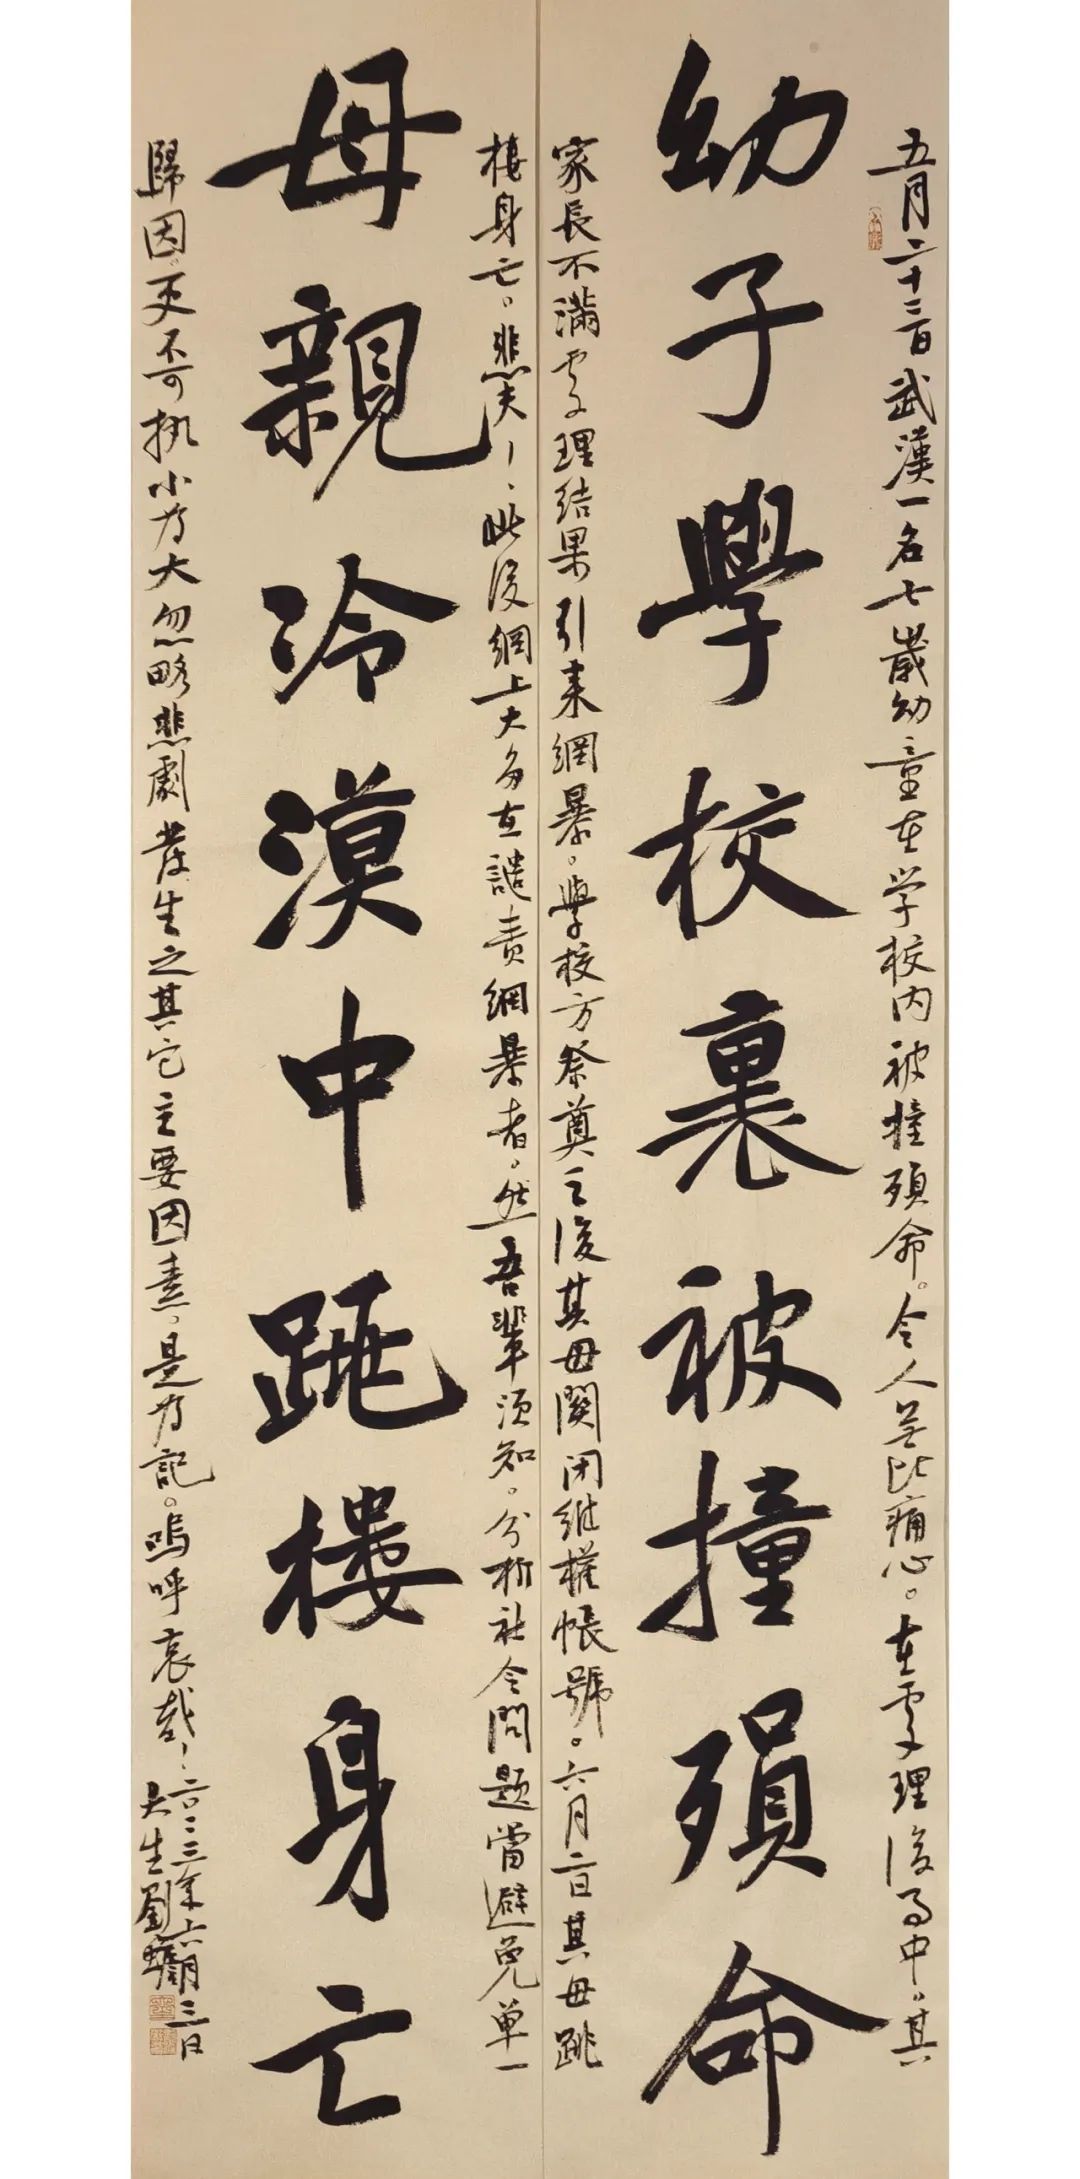 五月二十三日武漢一名七歲幼童在学校内被撞殞命。令人無比痛心。在處理後事中。其
幼子學校裏被撞殞命
家長不滿處理結果引來網暴。學校方祭奠之後其母關闭維權帳號。六月二日其母跳
楼身亡。悲夫！此後網上大多在譴責網暴者。然吾輩須知。分析社会問题當避免单一
母親冷漠中跳楼身亡
歸因。更不可執小为大忽略悲劇發生之其它主要因素。是为記。嗚呼哀哉！二〇二三年六月三日
大生劉